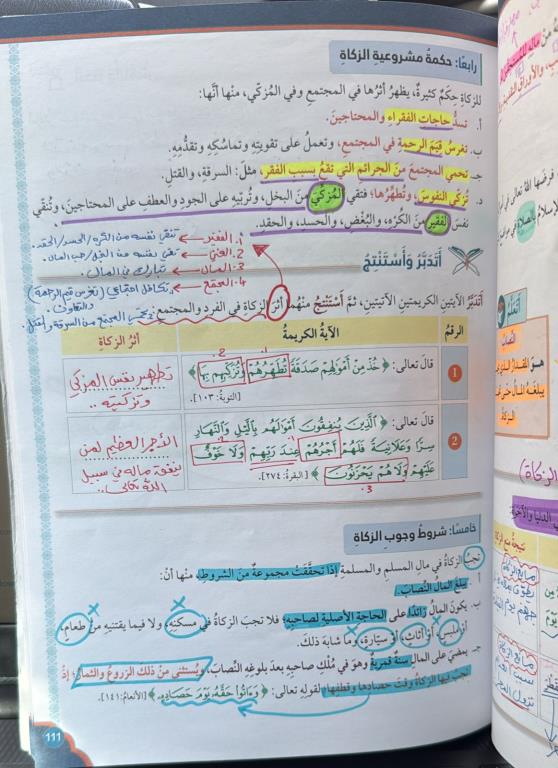 رابعًا: حكمةُ مشروعيةِ الزكاةِ
للزكاةِ حِكَمٌ كثيرةٌ، يظهرُ أثرُها في المجتمعِ وفي المُزكّي، منها أنَّها:
أ. تسدُّ حاجات الفقراءِ والمحتاجينَ.
ب. تغرسُ قيَمَ الرحمةِ في المجتمعِ، وتعملُ على تقويتِهِ وتماسُكِهِ وتقدُّمِهِ.
جـ. تحمي المجتمعَ منَ الجرائمِ التي تقعُ بسببِ الفقرِ، مثلَ: السرقةِ، والقتلِ.
د. تزكّي النفوسَ، وتُطهِّرُها؛ فتنقي المُزكّيَ منَ البخلِ، وتُربّيهِ على الجودِ والعطفِ على المحتاجينَ، وتُنقّي
نفسَ الفقيرِ منَ الكُرْهِ، والبُغضِ، والحسدِ، والحقدِ.
١. الفقير ← تنقي نفسه من الكره/الحسد/الحقد.
٢. الغني ← تنقي نفسه من البخل/حب المال.
٣. المال ← تبارك في المال.
٤. المجتمع ← تكافل اجتماعي (تغرس قيم الرحمة) والتعاون.
تحمي المجتمع من السرقة والقتل
أَتَدَبَّرُ وَأَسْتَنْتِجُ
أَتدبَّرُ الآيتينِ الكريمتينِ الآتيتينِ، ثمَّ أَسْتنتِجُ منهُما أثرَ الزكاةِ في الفردِ والمجتمعِ:
الرقمُ
الآيةُ الكريمةُ
أثرُ الزكاةِ
1
قالَ تعالى: ﴿ خُذْ مِنْ أَمْوَالِهِمْ صَدَقَةً تُطَهِّرُهُمْ وَتُزَكِّيهِم بِهَا ﴾
[التوبة: ١٠٣].
تطهير نفس المزكي
وتزكيته ..
2
قالَ تعالى: ﴿ الَّذِينَ يُنفِقُونَ أَمْوَالَهُم بِالَّيْلِ وَالنَّهَارِ
سِرًّا وَعَلَانِيَةً فَلَهُمْ أَجْرُهُمْ عِندَ رَبِّهِمْ وَلَا خَوْفٌ
عَلَيْهِمْ وَلَا هُمْ يَحْزَنُونَ ﴾ [البقرة: ٢٧٤].
الأجر العظيم لمن
ينفق ماله في سبيل
الله تعالى ..
خامسًا: شروطُ وجوبِ الزكاةِ
تجبُ الزكاةُ في مالِ المسلمِ والمسلمةِ إذا تحقَّقَتْ مجموعةٌ منَ الشروطِ، منها أنْ:
أ. يبلغَ المالُ النِّصابَ.
ب. يكونَ المالُ زائدًا على الحاجةِ الأصليةِ لصاحبِهِ؛ فلا تجبُ الزكاةُ في مسكنِهِ، ولا فيما يقتنيهِ منْ طعامٍ،
أوْ ملبسٍ، أوْ أثاثٍ، أوْ سيّارةٍ، وما شابهَ ذلكَ.
جـ. يمضيَ على المالِ سنةٌ قمريةٌ وهوَ في مُلكِ صاحبِهِ بعدَ بلوغِهِ النصابَ، ويُستثنى منْ ذلكَ الزروعُ والثمارُ؛ إذْ
تجبُ فيها الزكاةُ وقتَ حصادِها وقطفِها، لقولِهِ تعالى: ﴿ وَءَاتُوا حَقَّهُ يَوْمَ حَصَادِهِ ﴾ [الأنعام: ١٤١].
111
أَتَعَلَّمُ
النِّصابُ